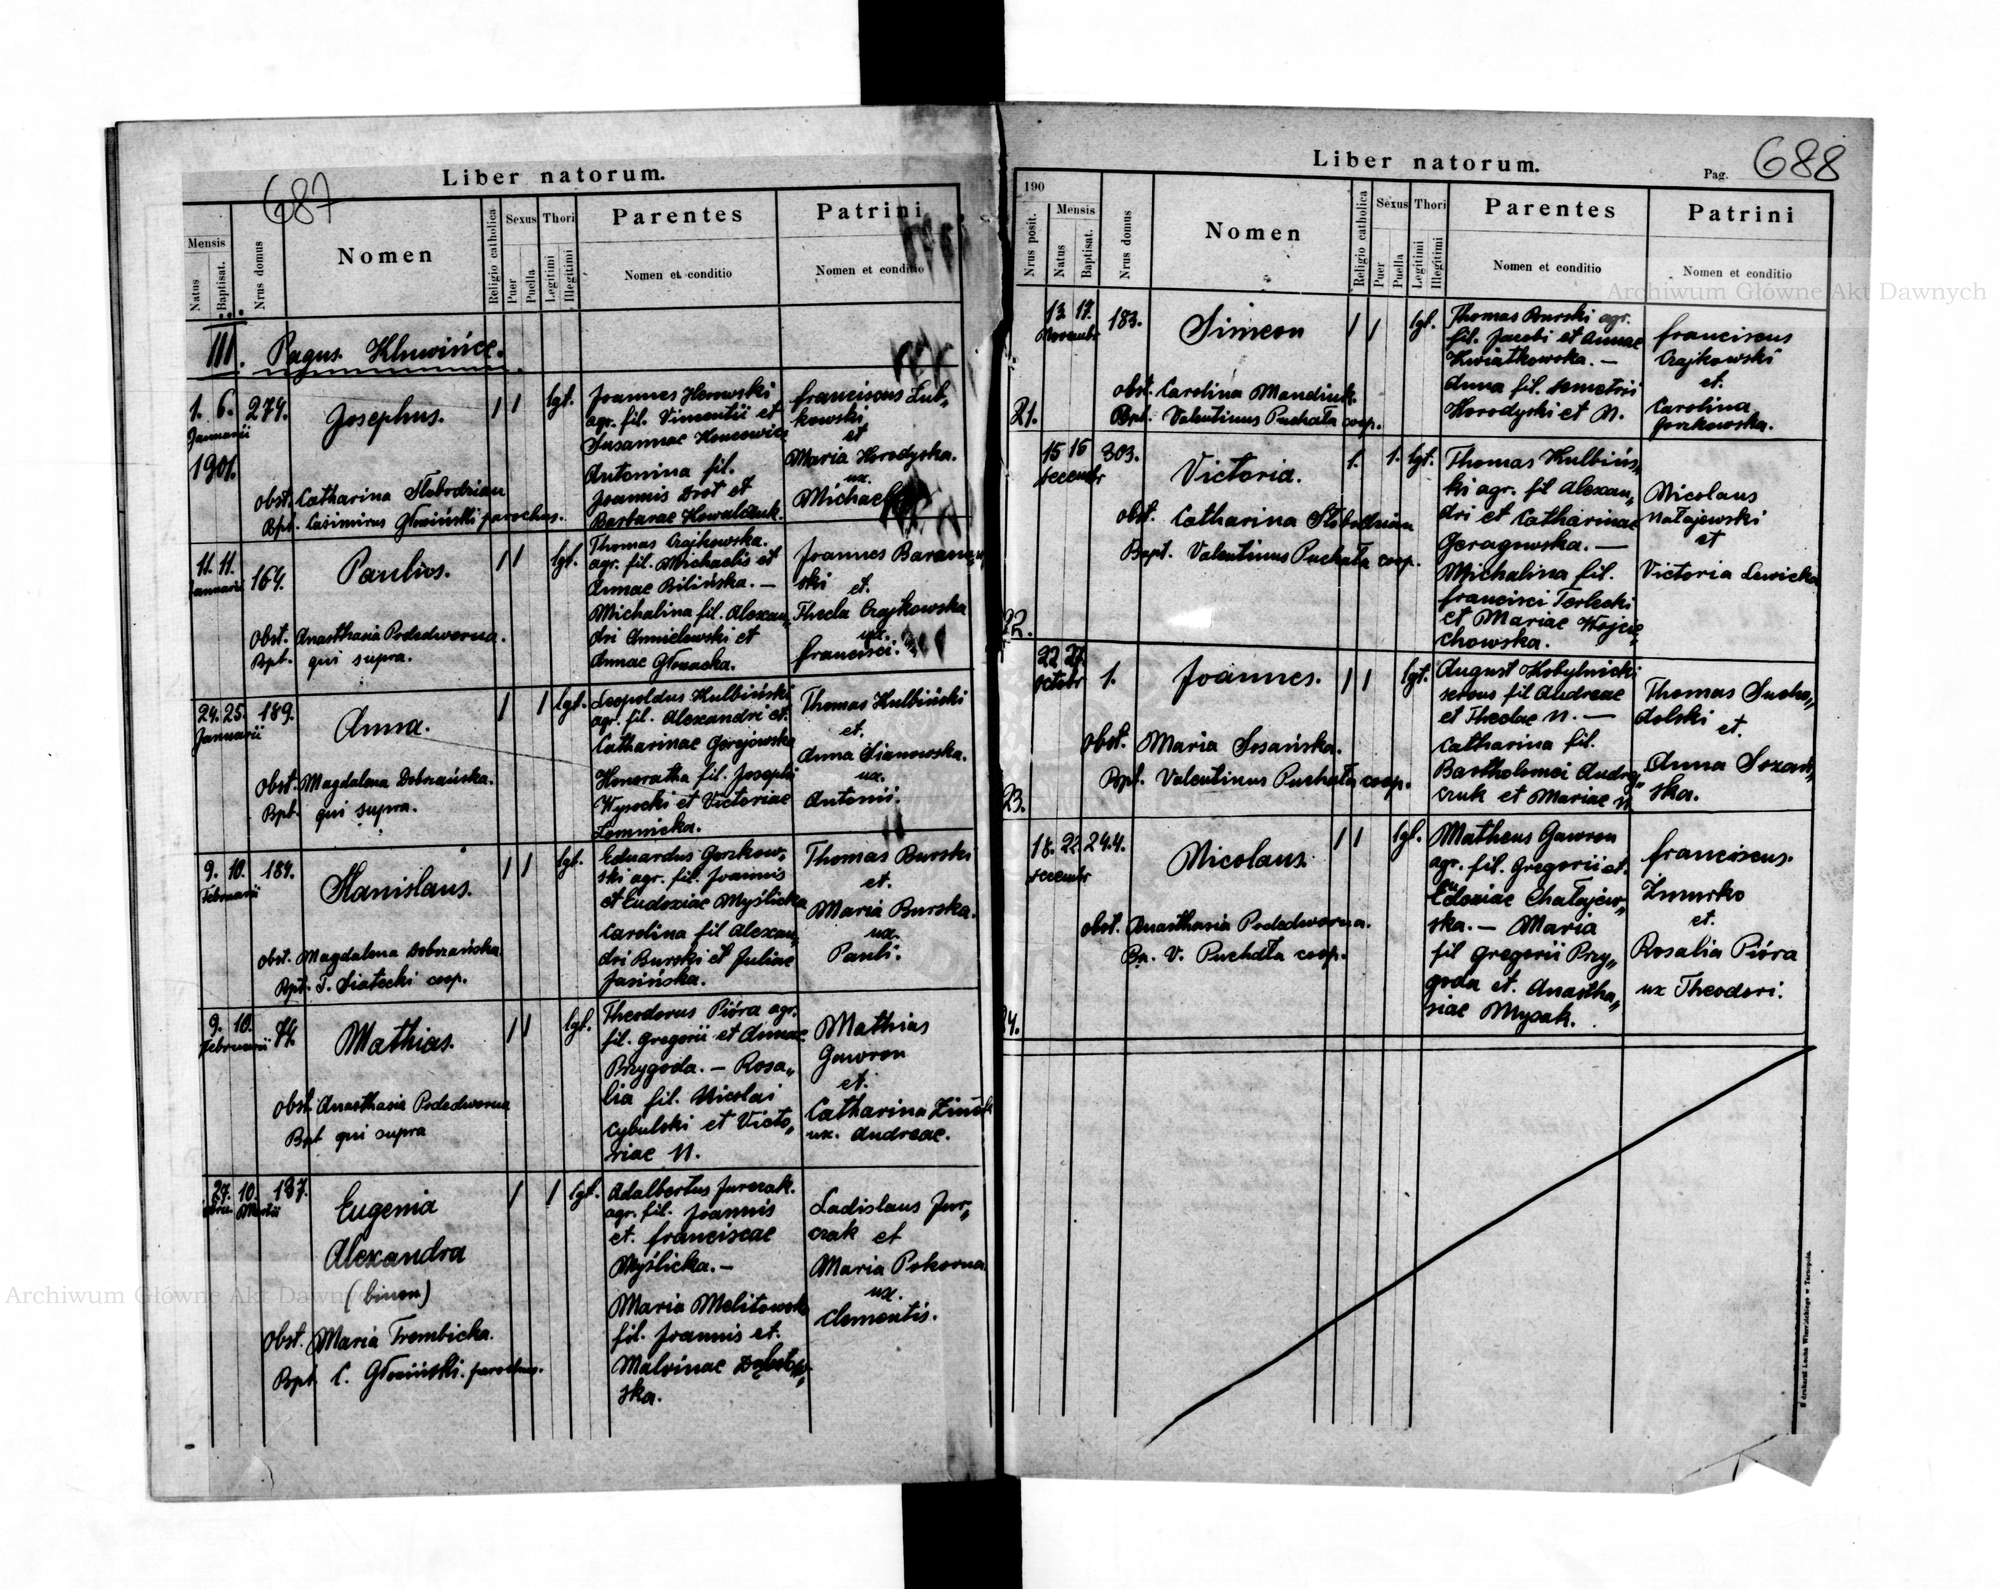 687
Liber natorum.
Mensis
Natus
Baptisat.
Nrus domus
Nomen
Religio catholica
Sexus
Puer
Puella
Thori
Legitimi
Illegitimi
Parentes
Nomen et conditio
Patrini
Nomen et conditio
III. Pagus Kluwińce.
1. 6. 274.
Januarii
1901.
Josephus.
lgt.
Joannes Horowski
agr. fil. Vincentii et
Susannae
Antonina fil.
Joannis Drot et
Barbarae Kowalczuk.
Franciscus Lut„
kowski
et
Maria Horodyska.
ux.
Michael
obst. Catharina Slobodzian
Bpt. Casimirus Głowiński parochus.
11. 11. 164.
Januarii
Paulus.
lgt.
Thomas Czajkowska.
agr. fil. Michaelis et
Annae Bilińska. —
Michalina fil. Alexan„
dri Chmielowski et
Annae Głowacka.
Joannes Baranow„
ski
et.
Thecla Czajkowska
ux.
Francisci.
Obst. Anasthasia Podedworna.
Bpt. qui supra.
24. 25. 189.
Januarii
Anna.
lgt.
Leopoldus Kulbiński
agr. fil. Alexandri et.
Catharinae Gerejowska
Honoratha fil. Josephi
Wysocki et Victoriae
Łomnicka.
Thomas Kulbiński
et.
Anna Sianowska.
ux.
Antonii.
Obst. Magdalena Dobrzańska.
Bpt. qui supra.
9. 10. 184.
Februarii
Stanislaus.
lgt.
Eduardus Gorzkow„
ski agr. fil. Joannis
et Eudoxiae Myślicka
Carolina fil Alexan„
dri Burski et Juliae
Jasińska.
Thomas Burski
et.
Maria Burska.
ux.
Pauli.
obst. Magdalena Dobrzańska.
Bpt. T. Siatecki coop.
9. 10. 74.
Februarii
Mathias.
lgt.
Theodorus Pióra agr.
fil. Gregorii et Annae
Przygoda. — Rosa„
lia fil. Nicolai
Cybulski et Victo„
riae N.
Mathias
Gawron
et.
Catharina
ux. Andreae.
obst. Anasthasia Podedworna
Bpt qui supra
27. 10. 137.
Martii
Eugenia
Alexandra
(binon)
lgt.
Adalbertus Jurczak.
agr. fil. Joannis
et. Franciscae
Myślicka. —
Maria Melitowska
fil. Joannis et.
Malvinae
ska.
Ladislaus Jur„
czak et
Maria Pokorna
ux.
Clementis.
Obst. Maria Trembicka.
Bpt C. Głowiński. parochus.
Liber natorum.
Pag. 688
190
Nrus posit.
Mensis
Natus
Baptisat.
Nrus domus
Nomen
Religio catholica
Sexus
Puer
Puella
Thori
Legitimi
Illegitimi
Parentes
Nomen et conditio
Patrini
Nomen et conditio
13 17. 183.
Novembr
Simeon
lgt.
Thomas Burski agr.
fil. Jacobi et Annae
Kwiatkowska. —
Anna fil. Demetrii
Horodyski et N.
Franciscus
Czajkowski
et.
Carolina
Gorzkowska.
obst. Carolina Mandiuk.
Bpt. Valentinus Puchała coop.
21.
15 16 303.
Decembr
Victoria.
1. 1. lgt.
Thomas Kulbińs„
ki agr. fil Alexan„
dri et Catharinae
Geragowska. —
Michalina fil.
Francisci Terlecki
et Mariae Wojcie„
chowska.
Nicolaus
Natajewski
et
Victoria Lewicka
obst. Catharina Slobodzian
Bapt. Valentinus Puchała coop.
22.
22 27. 1.
Octobr
Joannes.
lgt.
August Kobylnicki
servus fil Andreae
et Theclae N. —
Catharina fil.
Bartholomei Andrej„
czuk et Mariae N.
Thomas Sucho„
dolski
et.
Anna Sozań„
ska.
obst. Maria Sosańska.
Bpt. Valentinus Puchała coop.
23.
18. 22. 244.
Decembr
Nicolaus.
lgt.
Matheus Gawron
agr. fil. Gregorii et.
Eudoxiae Chałajew„
ska. — Maria
fil Gregorii Przy„
goda et. Anastha„
siae Mysak.
Franciscus.
Żmurko
et.
Rosalia Pióra
ux Theodori.
obst. Anasthasia Podedworna.
Bp. V. Puchała coop.
24.
Archiwum Główne Akt Dawnych
Archiwum Główne Akt Dawnych